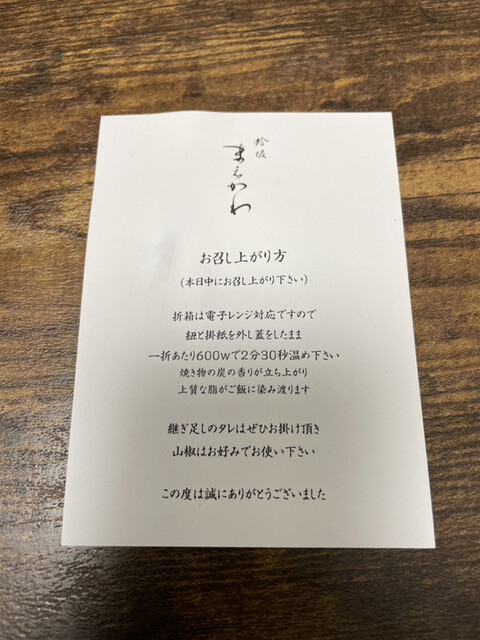 まるかわ
お召し上がり方
(本日中にお召し上がり下さい)
折箱は電子レンジ対応ですので
紐と掛紙を外し蓋をしたまま
一折あたり600wで2分30秒温め下さい
焼き物の炭の香りが立ち上がり
上質な脂がご飯に染み渡ります
継ぎ足しのタレはぜひお掛け頂き
山椒はお好みでお使い下さい
この度は誠にありがとうございました